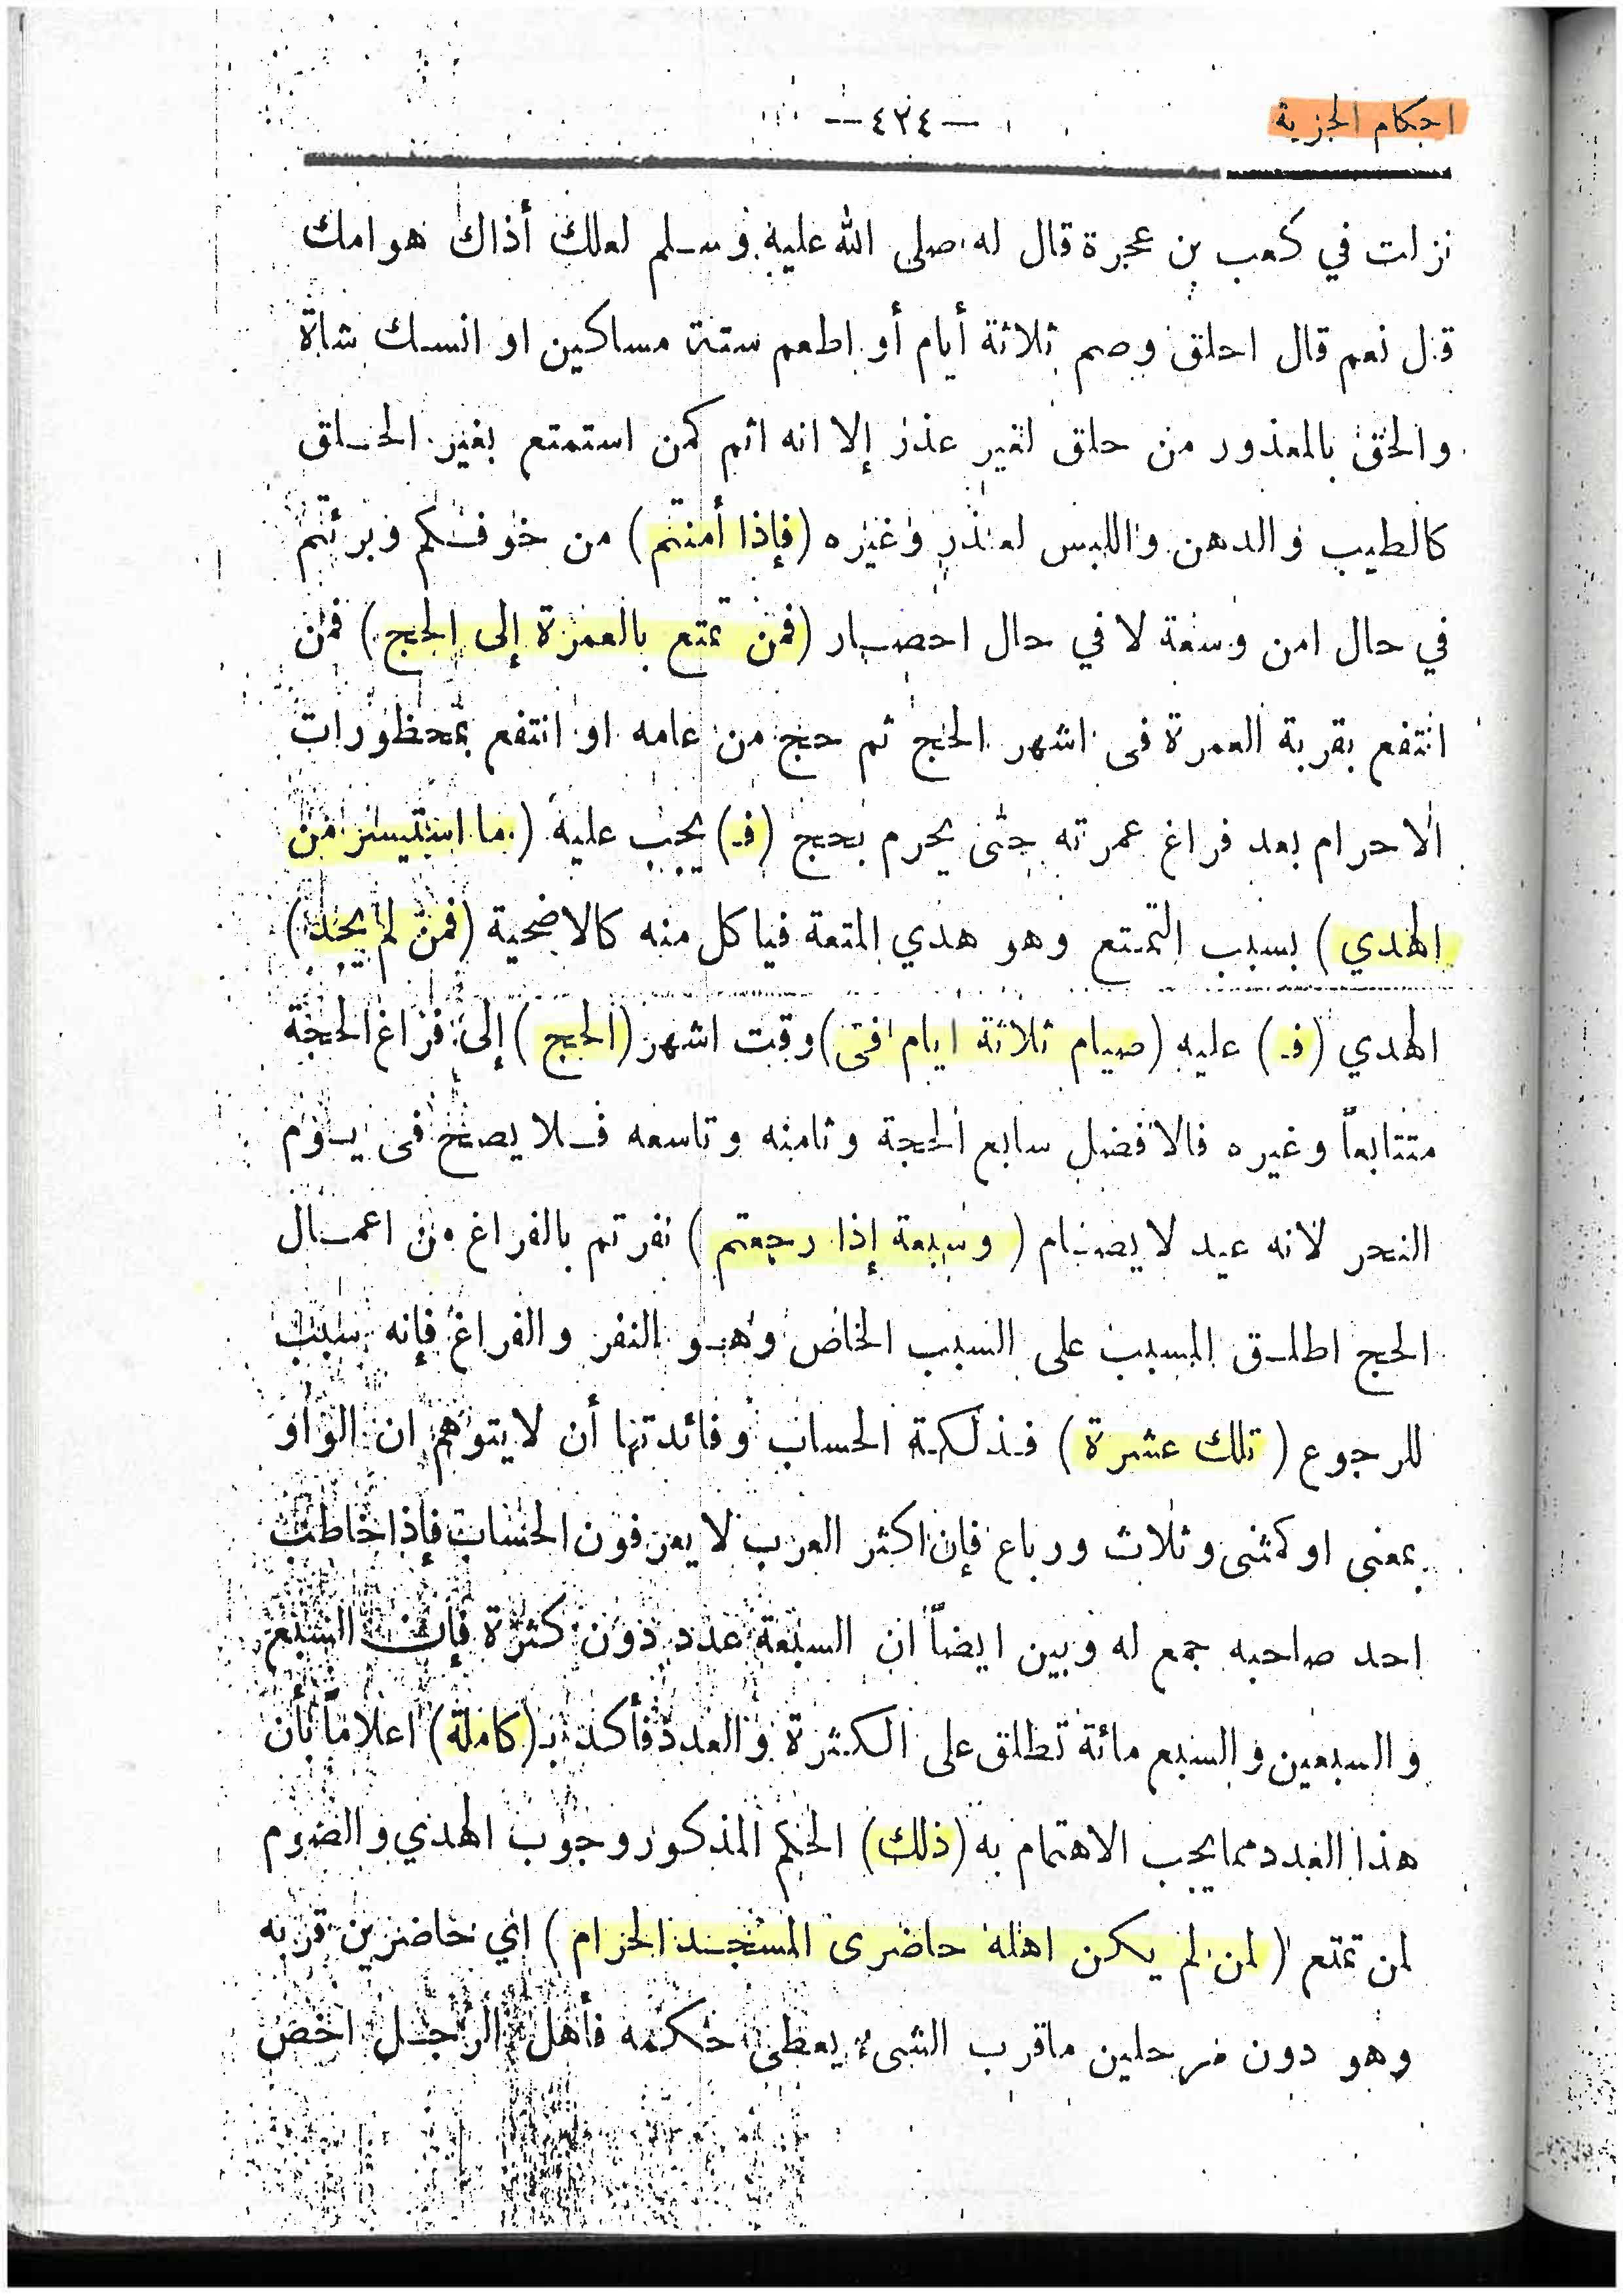 احكام الجزية
—٤٢٤—
نزلت في كعب بن عجرة قال له صلى الله عليه وسلم لعلك أذاك هوامك
قل نعم قال احلق وصم ثلاثة أيام أو اطعم ستة مساكين او انسك شاة
والحق بالمعذور من حلق لغير عذر إلا انه اثم كمن استمتع بغير الحلق
كالطيب والدهن واللبس لعذر وغيره (فإذا أمنتم) من خوفكم وبرئتم
في حال امن وسعة لا في حال احصار (فمن تمتع بالعمرة إلى الحج) فمن
انتفع بقربة العمرة فى اشهر الحج ثم حج من عامه او انتفع بمحظورات
الاحرام بعد فراغ عمرته حتى يحرم بحج (فـ) يجب عليه (ما استيسر من
الهدي) بسبب التمتع وهو هدي المتعة فيأكل منه كالاضحية (فمن لم يجد)
الهدي (فـ) عليه (صيام ثلاثة ايام فى) وقت اشهر (الحج) إلى فراغ الحجة
متتابعاً وغيره فالافضل سابع الحجة وثامنه وتاسعه فلا يصح فى يوم
النحر لانه عيد لا يصام (وسبعة إذا رجعتم) نفرتم بالفراغ من اعمال
الحج اطلق المسبب على السبب الخاص وهو النفر والفراغ فإنه سبب
للرجوع (تلك عشرة) فذلكة الحساب وفائدتها أن لا يتوهم ان الواو
بمعنى او كمثنى وثلاث ورباع فإن اكثر العرب لا يعرفون الحساب فإذا خاطب
احد صاحبه جمع له وبين ايضاً ان السبعة عدد دون كثرة فإن السبع
والسبعين والسبع مائة تطلق على الكثرة والعدد فأكد بـ(كاملة) اعلاماً بأن
هذا العدد مما يجب الاهتمام به (ذلك) الحكم المذكور وجوب الهدي والصوم
لمن تمتع (لمن لم يكن اهله حاضرى المسجد الحرام) اي حاضرين قربه
وهو دون مرحلين ماقرب الشىء يعطى حكمه فأهل الرجل اخص